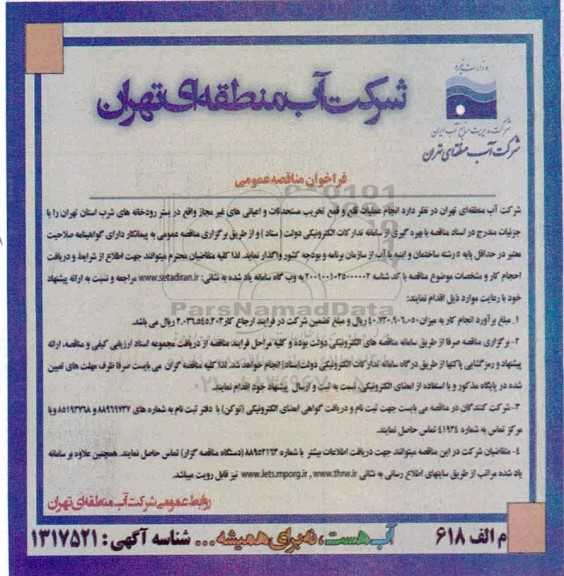 وزارت نیرو
شرکت مدیریت منابع آب ایران
شرکت آب منطقه‌ای تهران
شرکت آب منطقه‌ای تهران
فراخوان مناقصه عمومی
شرکت آب منطقه‌ای تهران در نظر دارد انجام عملیات قلع و قمع تخریب مستحدثات و اعیانی های غیر مجاز واقع در بستر رودخانه های غرب استان تهران را با
جزئیات مندرج در اسناد مناقصه با بهره گیری از سامانه تدارکات الکترونیکی دولت ( ستاد ) و از طریق برگزاری مناقصه عمومی به پیمانکار دارای گواهینامه صلاحیت
معتبر در حداقل پایه ۵ رشته ساختمان و ابنیه یا آب از سازمان برنامه و بودجه کشور واگذار نماید. لذا کلیه متقاضیان محترم میتوانند جهت اطلاع از شرایط و دریافت
احجام کار و مشخصات موضوع مناقصه با کد شماسه به وب گاه سامانه یاد شده به نشانی: www.setadiran.ir مراجعه و نسبت به ارائه پیشنهاد
خود با رعایت موارد ذیل اقدام نمایند:
۱_ مبلغ برآورد انجام کار به میزان ریال و مبلغ تضمین شرکت در فرایند ارجاع کار ۲.۰۳۶.۵۴۵.۳۰۲ ریال می باشد.
۲- برگزاری مناقصه صرفا از طریق سامانه مناقصه های الکترونیکی دولت بوده و کلیه مراحل فرایند مناقصه از دریافت مجموعه اسناد ارزیابی کیفی و مناقصه، ارائه
پیشنهاد و رمزگشایی پاکتها از طریق درگاه سامانه تدارکات الکترونیکی دولت(ستاد) انجام خواهد شد. لذا کلیه مناقصه گران می بایست صرفا ظرف مهلت های تعیین
شده در پایگاه مذکور و با استفاده از امضای الکترونیکی، نسبت به ثبت و ارسال پیشنهاد خود اقدام نمایند.
۳- شرکت کنندگان در مناقصه می بایست جهت ثبت نام و دریافت گواهی امضای الکترونیکی (توکن) با دفتر ثبت نام به شماره های ۸۸۹۶۹۷۳۷ و ۸۵۱۹۳۷۶۸ ویا
مرکز تماس به شماره ۴۱۹۳۴ تماس حاصل نمایند.
۴- متقاضیان شرکت در این مناقصه میتوانند جهت دریافت اطلاعات بیشتر با شماره ۸۸۹۵۲۱۶۳ (دستگاه مناقصه گزار) تماس حاصل نمایند. همچنین علاوه بر سامانه
یاد شده مراتب از طریق سایتهای اطلاع رسانی به نشانی www.thrw.ir , www.iets.mporg.ir نیز قابل رویت میباشد.
روابط عمومی شرکت آب منطقه‌ای تهران
م الف ۶۱۸
آب هست، نه برای همیشه...
شناسه آگهی: ۱۳۱۷۵۲۱
ParsNamadData